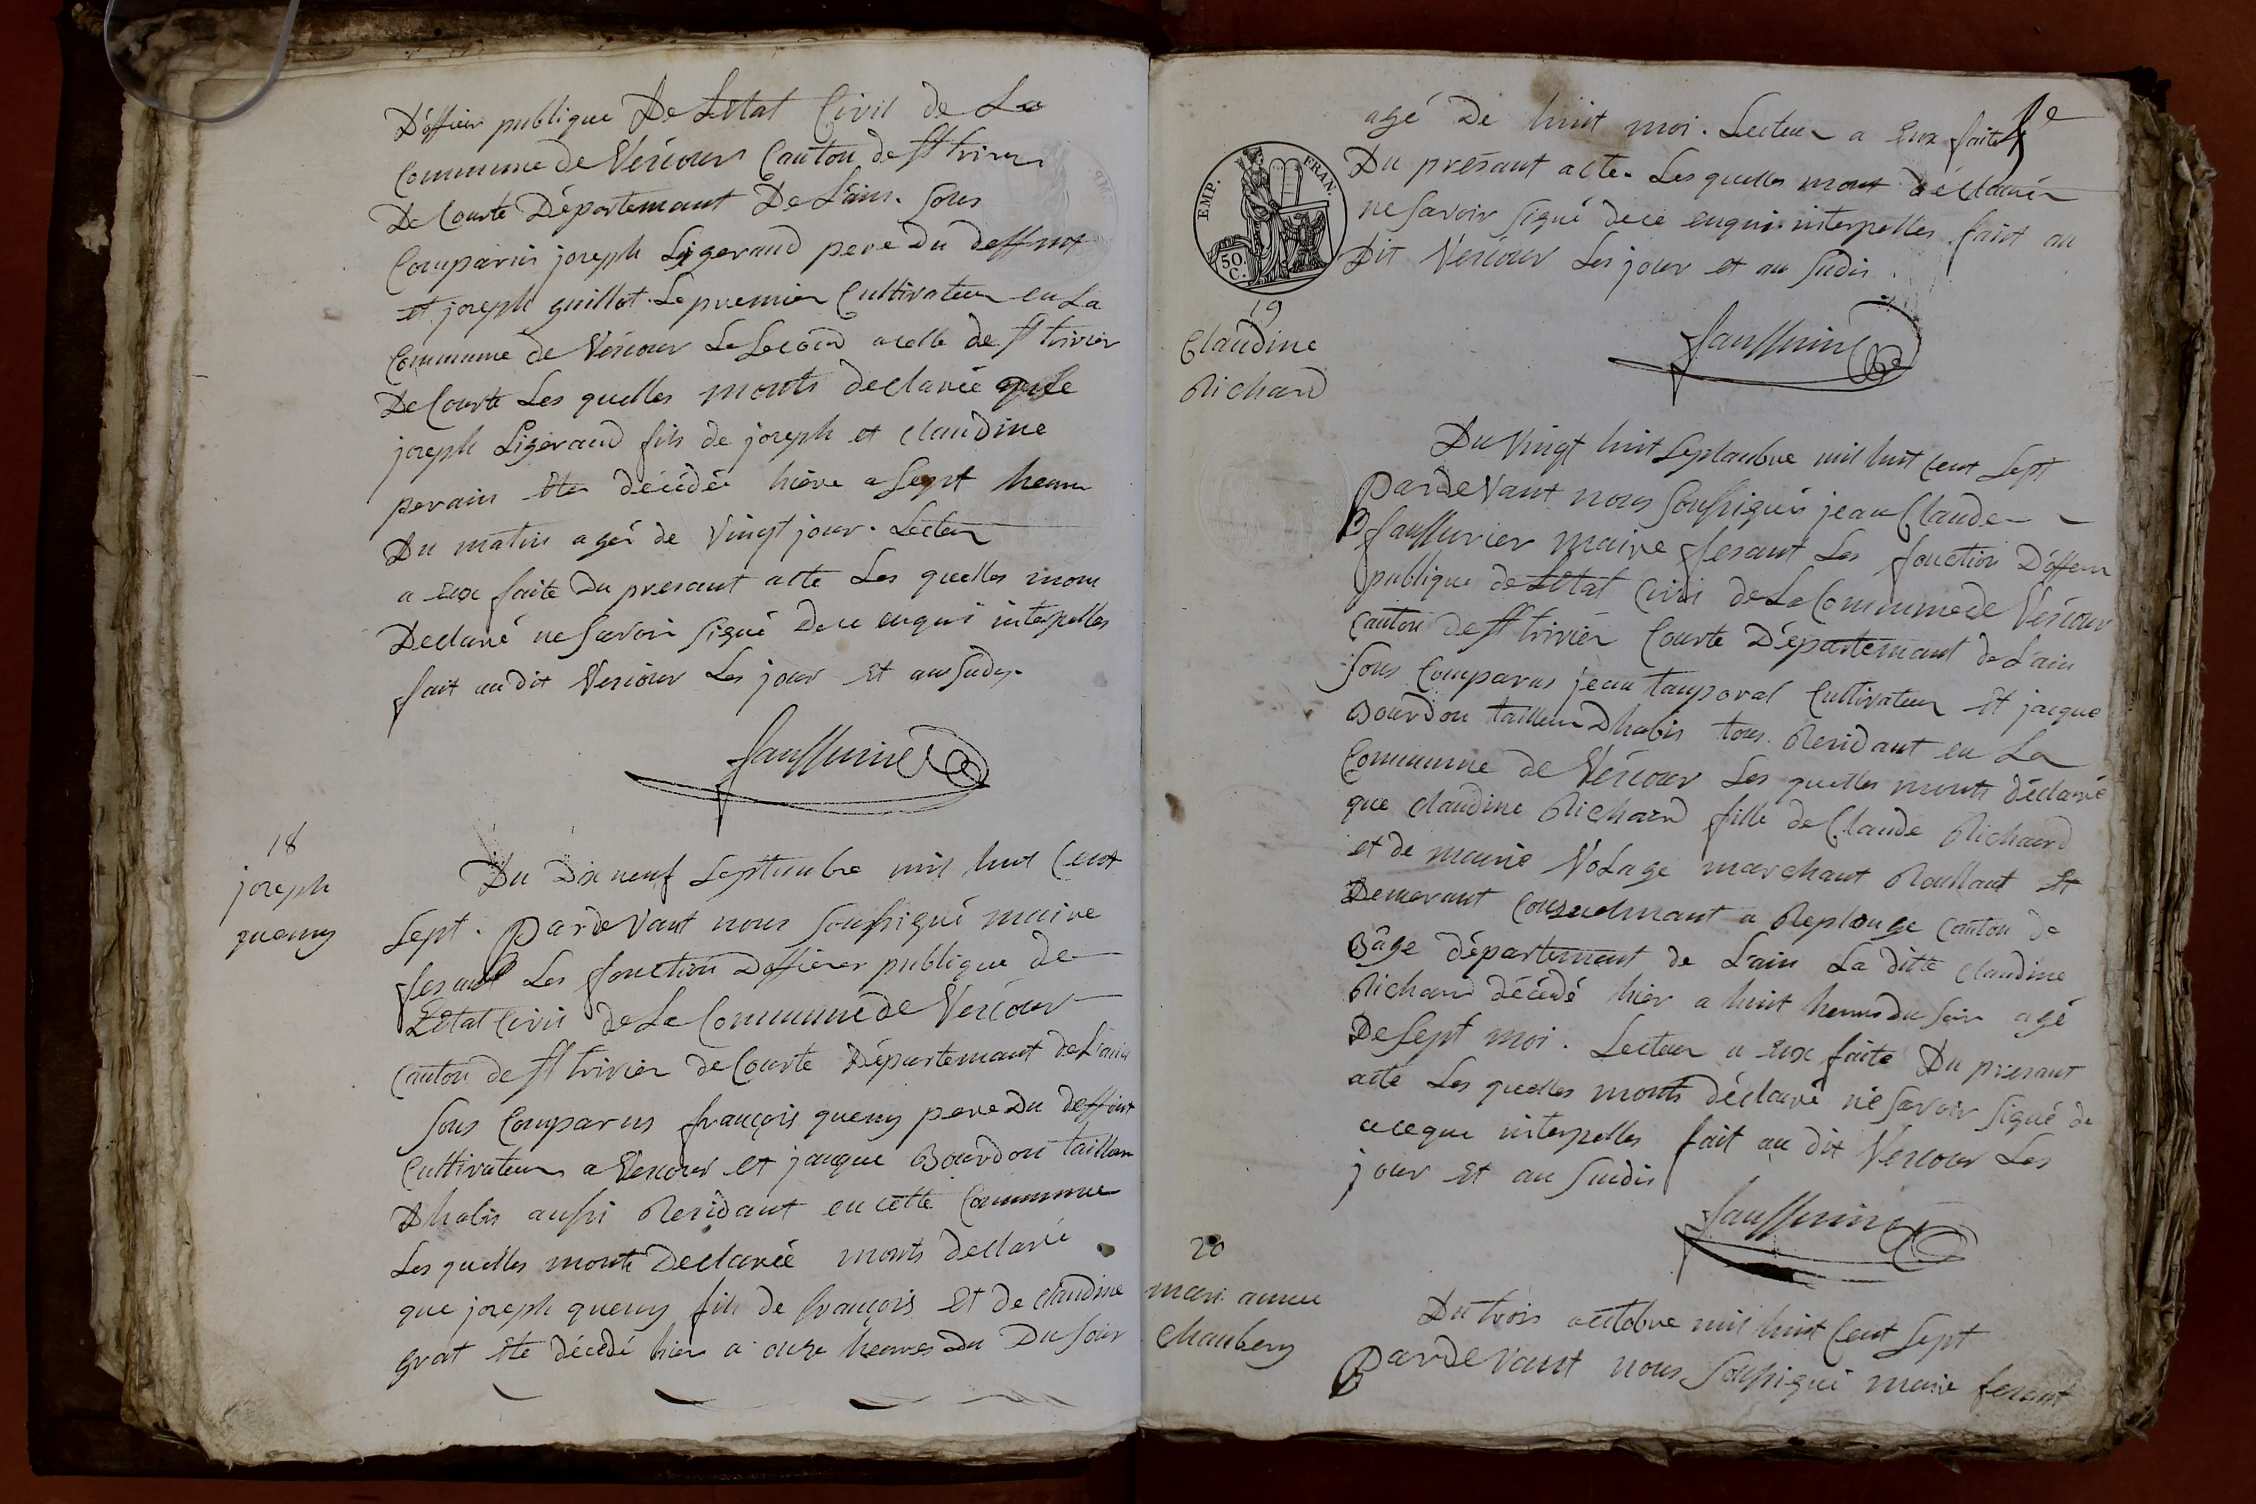 D'officier publique De Letat Civil de La
Commune de Vericour Canton de st trivier
De Courte Département De L'ain. Sons
Comparus joseph Ligeraud pere Du deffunt
et joseph guillot. Le premier Cultivateur en La
Commune de Vericour Le Second a celle de st trivier
De Courte Les quelles monts declarée que
joseph Ligeraud fils de joseph et Claudine
perain ete décédée hière a Sept heure
Du matin agé de Vingt jour. Lecteur
a eux faite Du presant acte Les quelles mont
Declaré ne Savoir Signé de ce enquis interpelles
fait au dit Vericour Les jour et an Sudis
Saussurier
18
joseph
quemy
Du Dix neuf Septembre mil huit Cent
Sept. Par de Vant nous Soussigné maire
fesant Les fonction D'officier publique de
Létat Civil de La Commune de Vericour
Canton de st trivier de Courte Département de L'ain
Sons Comparus françois quemy pere Du deffunt
Cultivateur a Vericour et jacque Bourdon tailleur
Dhabis aussi Residant en cette Commune
Les quelles monts Declarée monts declaré
que joseph quemy fils de françois Et de claudine
grat ete décédé hier a onze heures Du Du Soir
agé De huit moi. Lecteur a eux faite
Du presant acte. Les quelles mont déclaréz
ne Savoir Signé de ce enquis interpelles. fait au
Dit Vericour Les jour et an Sudis.
EMP. FRAN.
50 C.
Saussurier
19
Claudine
Richard
Du Vingt huit Septanbre mil huit Cent Sept
Par de Vant nous Soussignés jean Claude
Saussurier maire fesant Les fonction D'officier
publique de Létat Civil de La Commune de Vericour
Canton de st trivier Courte Département de L'ain
Sons Comparus jean tanporal Cultivateur Et jacque
Bourdon tailleur Dhabis tous Residant en La
Commune de Vericour Les quelles monts déclaré
que Claudine Richard fille de Claude Richard
et de marie Volage marchant Roullant Et
Demerant a Replonge Canton de
Bâge département de L'ain La ditte Claudine
Richard décédé hier a huit heures du Soir agé
De Sept moi. Lecteur a eux faite Du presant
acte Les quelles monts déclaré ne Savoir Signé de
interpelles fait au dit Vericour Les
jour et an Sudis
Saussurier
20
mari annee
Chambery
Du trois octobre mil huit Cent Sept
Par de Vant nous Soussigné maire fesant